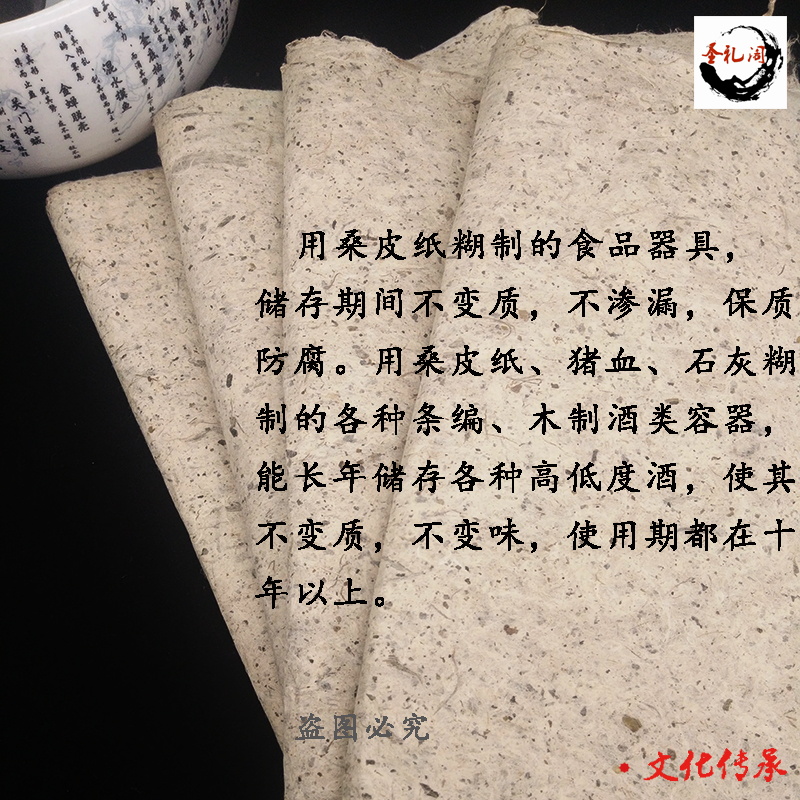 圣礼阁
金蝉脱壳
混水摸鱼
关门捉贼
用桑皮纸糊制的食品器具，
储存期间不变质，不渗漏，保质
防腐。用桑皮纸、猪血、石灰糊
制的各种条编、木制酒类容器，
能长年储存各种高低度酒，使其
不变质，不变味，使用期都在十
年以上。
盗图必究
·文化传承